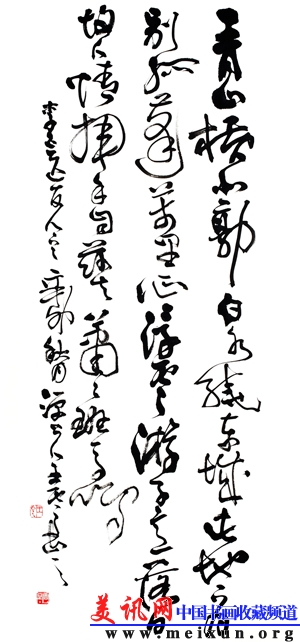 青山橫北郭白水繞東城此地一為
別孤蓬萬里征浮雲游子意落日
故人情揮手自茲去蕭々班馬鳴
李白送友人 辛卯秋月
美讯网 中国书画收藏频道
www.meixun.org